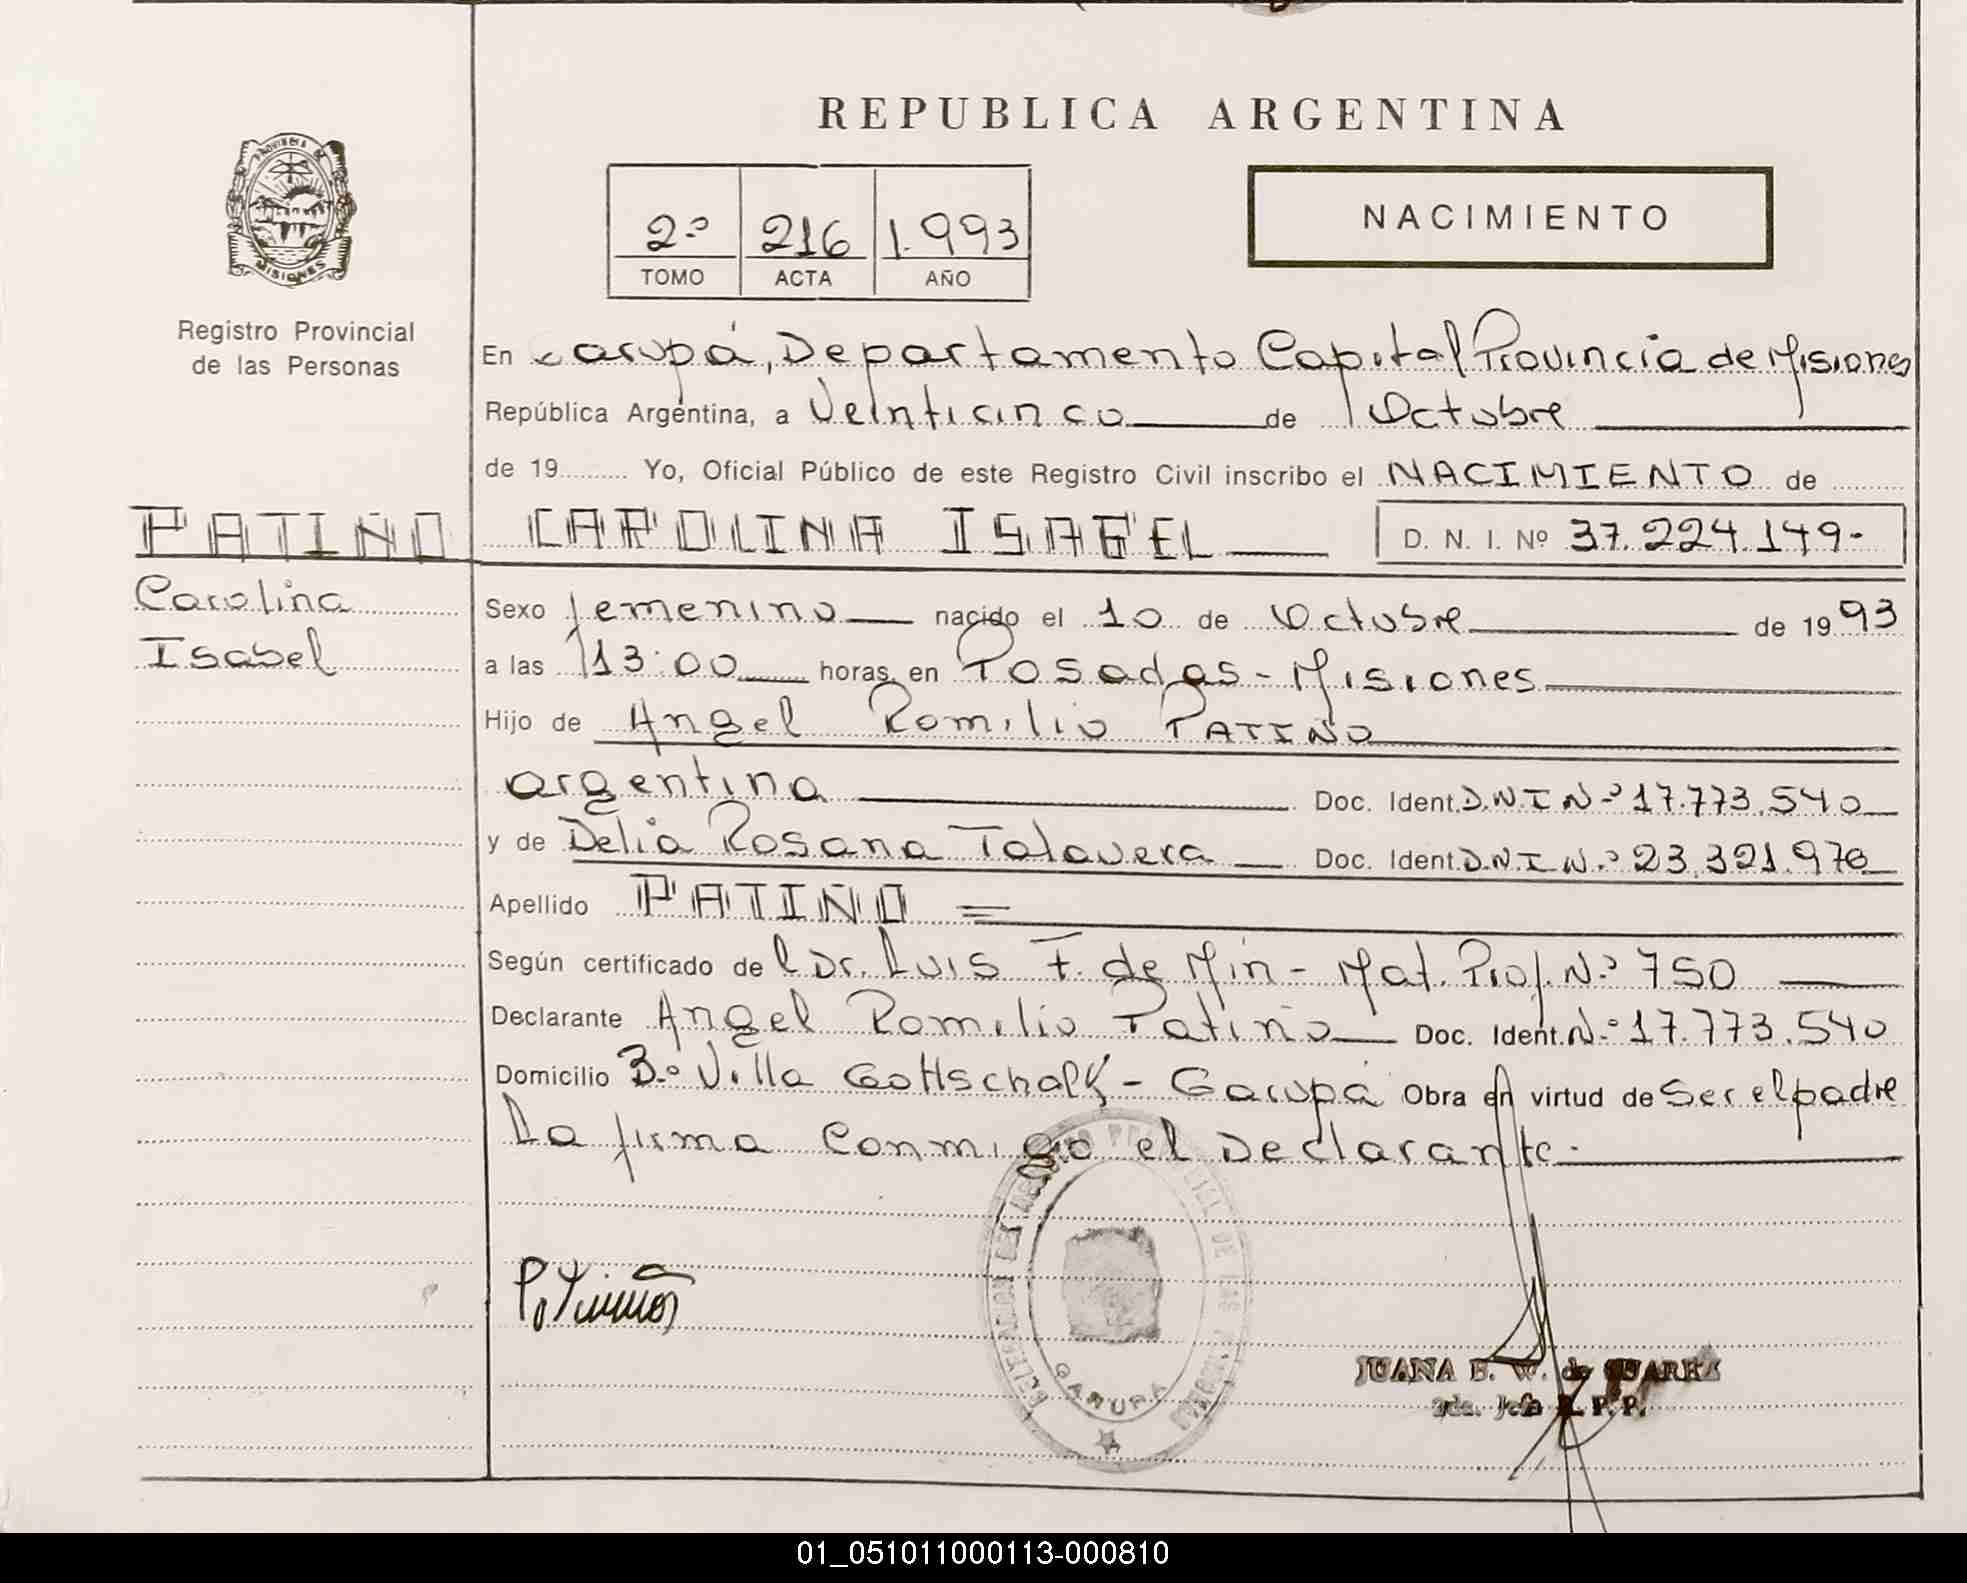 REPUBLICA ARGENTINA
PROVINCIA DE
MISIONES
Registro Provincial
de las Personas
2º 216 1.993
TOMO ACTA AÑO
NACIMIENTO
En Garupá, Departamento Capital Provincia de Misiones
República Argentina, a Veinticinco de Octubre
de 19 Yo, Oficial Público de este Registro Civil inscribo el NACIMIENTO de
PATIÑO CAROLINA ISABEL D. N. I. Nº 37.224.149-
Carolina
Isabel
Sexo femenino nacido el 10 de Octubre de 1993
a las 13:00 horas, en Posadas - Misiones
Hijo de Angel Romilio PATIÑO
argentina Doc. Ident. D.N.I Nº 17.773.540
y de Delia Rosana Talavera Doc. Ident. D.N.I Nº 23.321.976
Apellido PATIÑO =
Según certificado del Dr. Luis F. de Min - Mat. Prof. Nº 750
Declarante Angel Romilio Patiño Doc. Ident. Nº 17.773.540
Domicilio Bº Villa Gottschalk - Garupá Obra en virtud de Ser el padre
La firma Conmigo el Declarante.
GARUPA
JUANA E. W. de SUAREZ
2da. Jefa R. P. P.
01_051011000113-000810